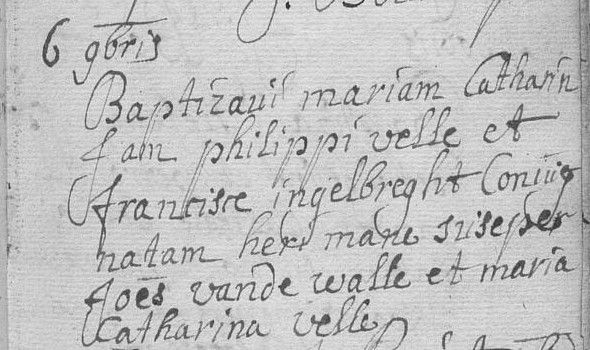 6 9bris
Baptizaui mariam Catharin
fam philippi velle et
francisce ingelbreght Coniug
natam heri mane susceper
Joes vande walle et maria
Catharina velle